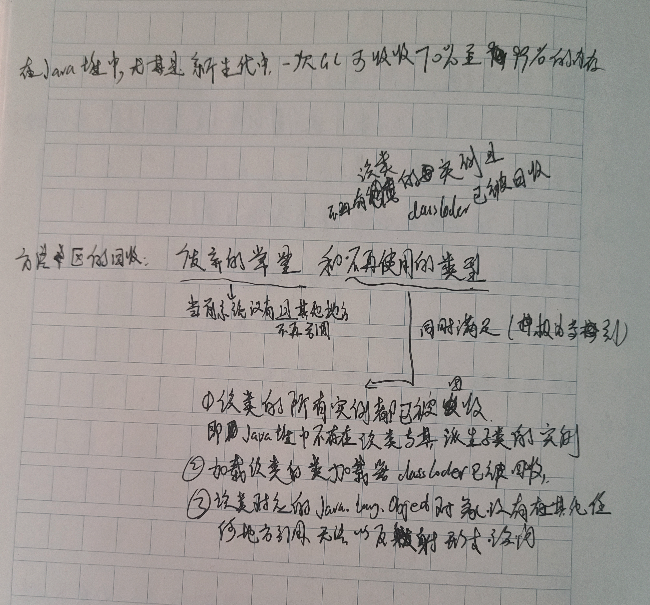 在Java堆中,尤其是新生代中,一次GC可收收70%至99%的内存
该类的实例且
不再有 classloder 已被回收
方法区的回收: 废弃的常量 和 不再使用的类型
当前系统没有且其他地方
不再引用
同时满足
①该类的所有实例都已被回收
即Java堆中不存在该类与其派生子类的实例
②加载该类的类加载器classloder已被回收,
③该类对应的java.lang.Object对象没有在其他任
何地方引用 无法以反射形式访问